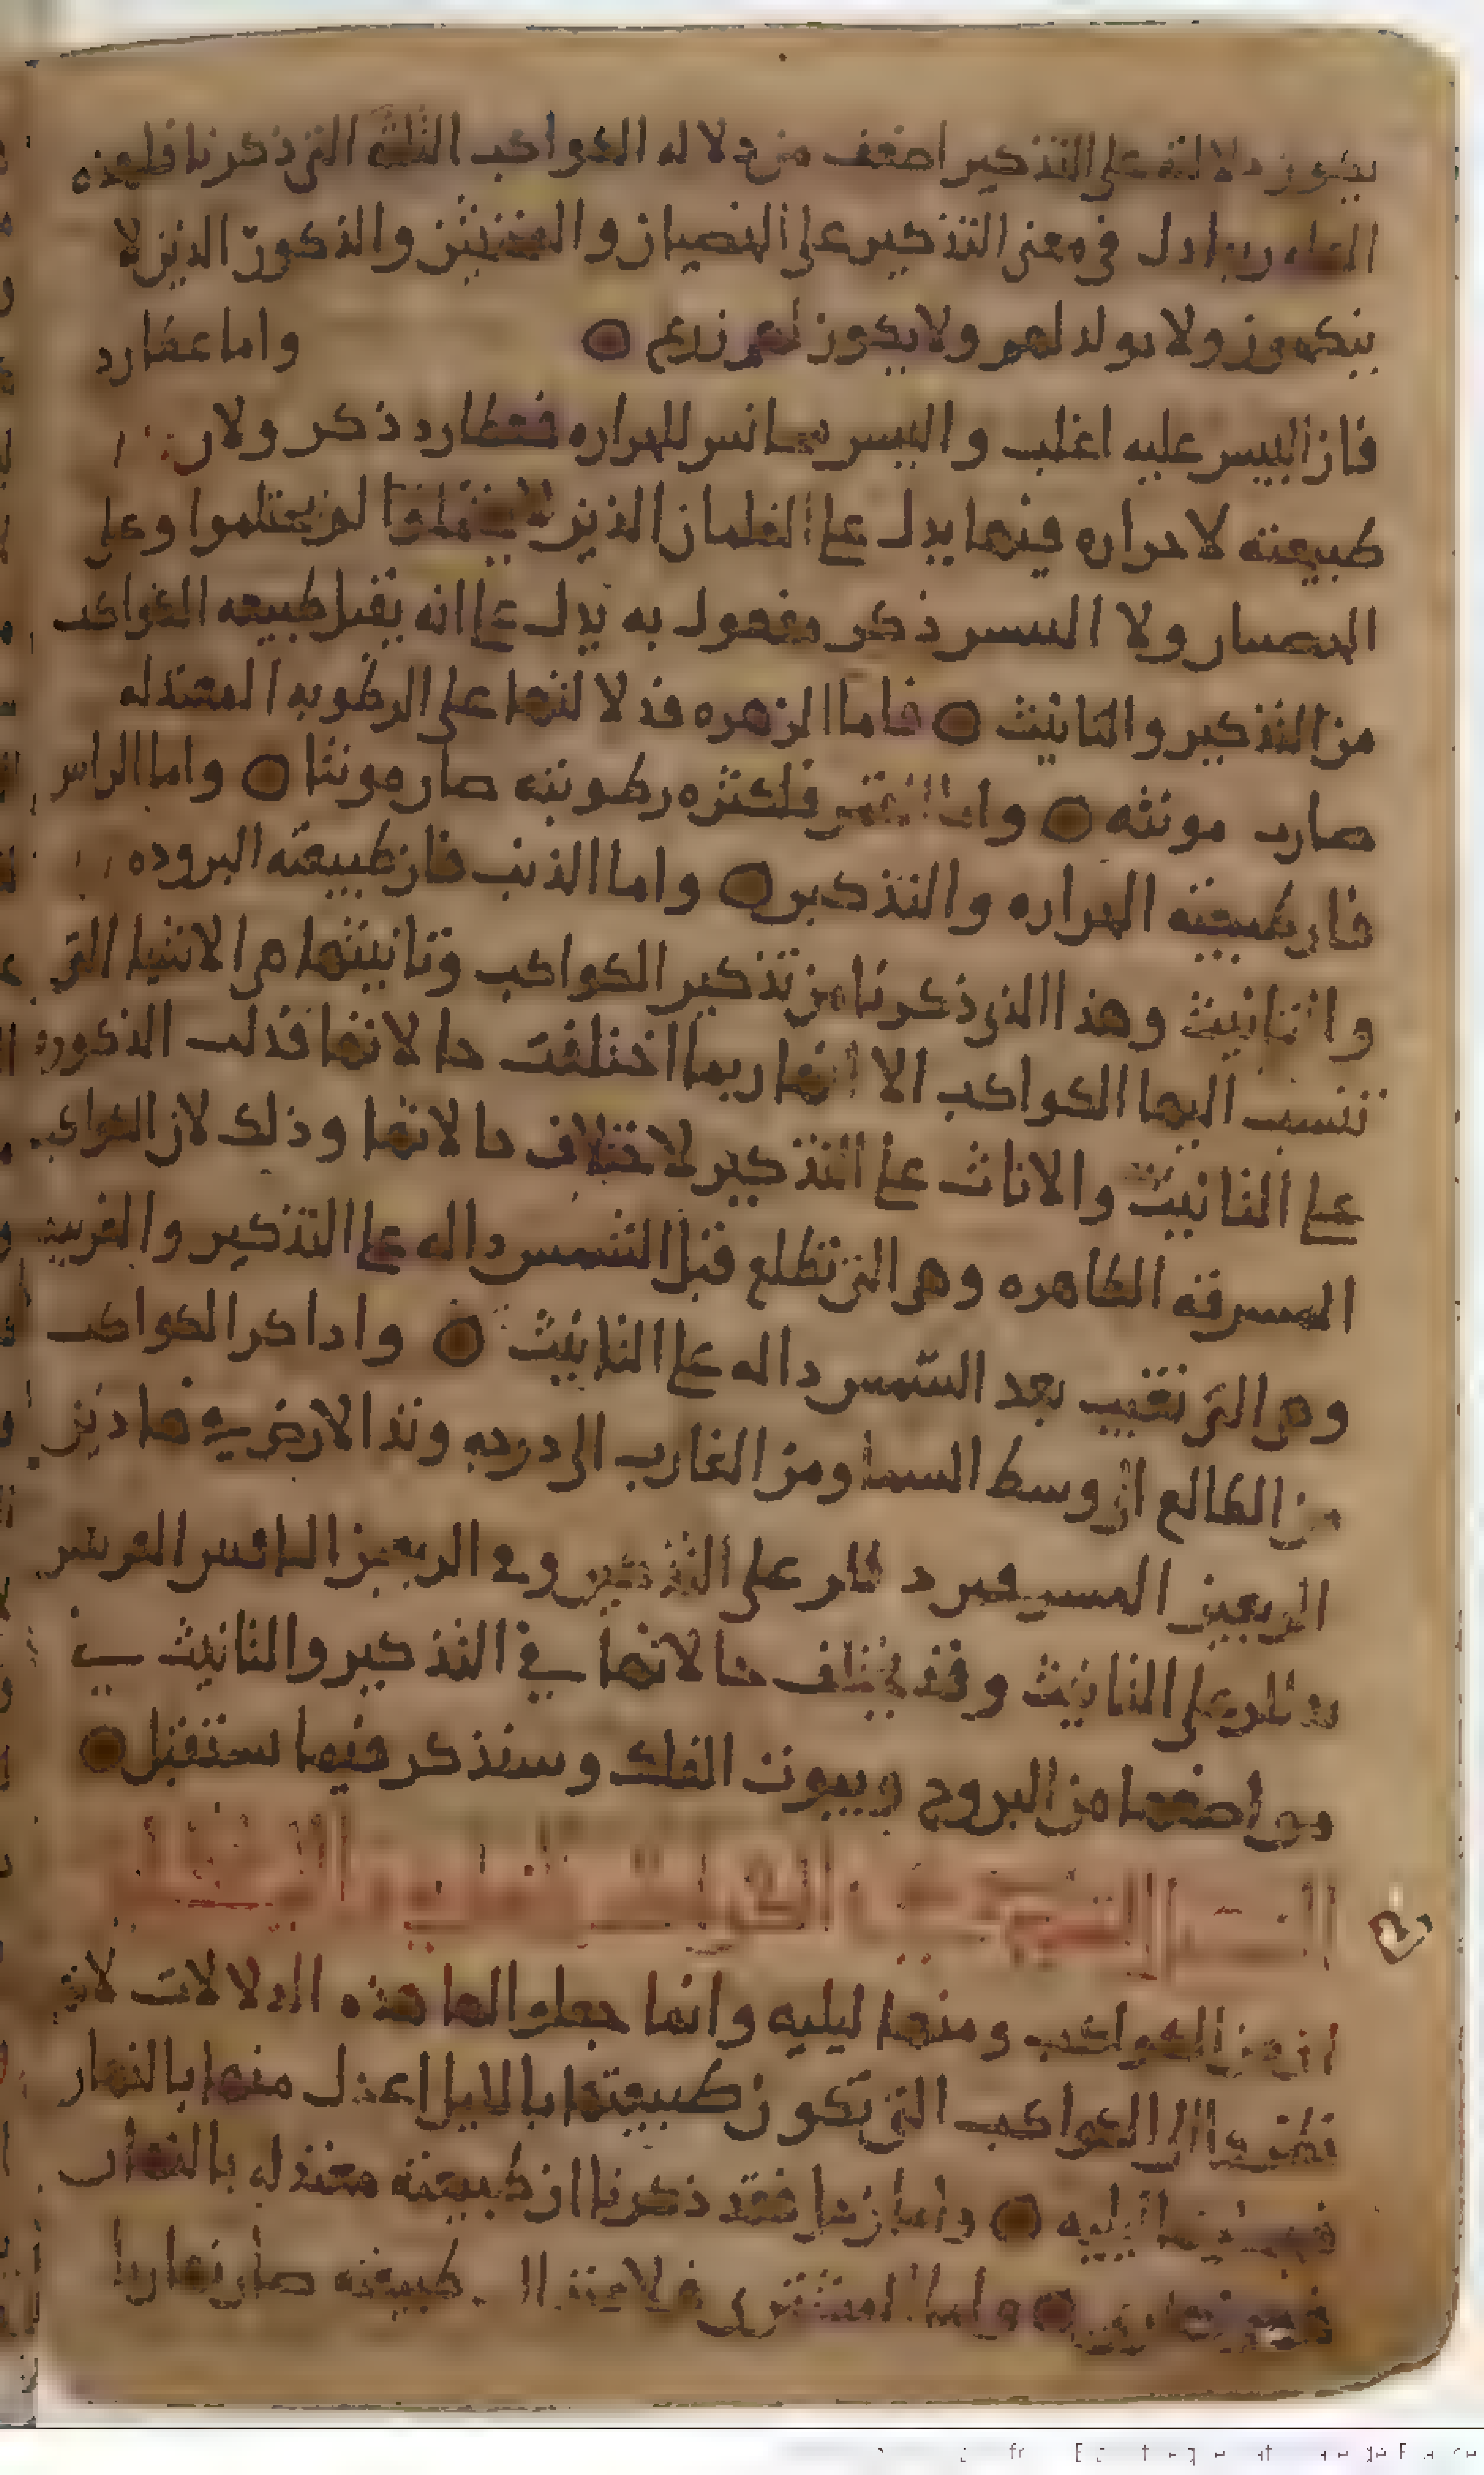 يكون دلالته على التذكير اضعف من دلاله الكواكب الثلثة التي ذكرنا فلهذه
ادل في معنى التذكير على الخصيان والمخنثين والذكور الذين لا
ينكحون ولا يولد لهم ولا يكون لهم زرع ○ واما عطارد
فان اليبس عليه اغلب واليبس مجانس للحراره فعطارد ذكر ولان
طبيعته لا حراره فيها يدل على الغلمان الذين لم يحتلموا وعلى
الخصيان ولان اليبس ذكر مفعول به يدل على انه يقبل طبيعه الكواكب
من التذكير والتانيث ○ فاما الزهره فدلالتها على الرطوبه المعتدله
صارت مونثه ○ واما القمر فلكثره رطوبته صار مونثا ○ واما الراس
فان طبيعته الحراره والتذكير ○ واما الذنب فان طبيعته البروده
والتانيث وهذا الذي ذكرنا من تذكير الكواكب وتانيثها هي الاشيا التي
تنسب اليها الكواكب الا انها ربما اختلفت حالاتها فدلت الذكوره
على التانيث والاناث على التذكير لاختلاف حالاتها وذلك لان الكواكب
المسرقه الظاهره وهي التي تطلع قبل الشمس داله على التذكير والغربيه
وهي التي تغيب بعد الشمس داله على التانيث ○ واذا كن الكواكب
من الطالع الى وسط السما ومن الغارب الى درجه وتد الارض في هاذين
الربعين المسرقين دللن على التذكير وفي الربعين الباقيين المونثين
دللن على التانيث وقد يختلف حالاتها في التذكير والتانيث في
مواضعها من البروج وبيوت الفلك وسنذكر فيما نستقبل ○
ان من الكواكب ومنها ليليه وانما جعلوا لها هذه الدلالات لانهم
نظروا الى الكواكب التي تكون طبيعتها بالليل اعدل منها بالنهار
ليليه ○ واما زحل فقد ذكرنا ان طبيعته معتدله بالنهار
○ واما المشتري فلاعتدال طبيعته صار نهاريا